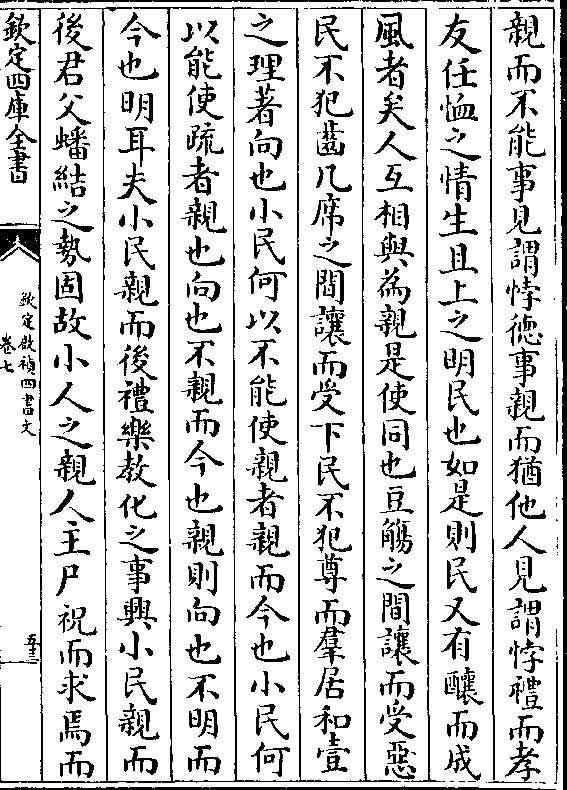 親而不能事見謂悖德事親而猶他人見謂悖禮而孝
友任恤之情生且上之明民也如是則民又有釀而成
風者矣人互相與為親是使同也豆觴之間讓而受惡
民不犯齒几席之間讓而受下民不犯尊而羣居和壹
之理著向也小民何以不能使親者親而今也小民何
以能使疏者親也向也不親而今也親則向也不明而
今也明耳夫小民親而後禮樂教化之事興小民親而
後君父蟠結之勢固故小人之親人主尸祝而求焉而
欽定四庫全書
欽定啟禎四書文
卷七
五十三